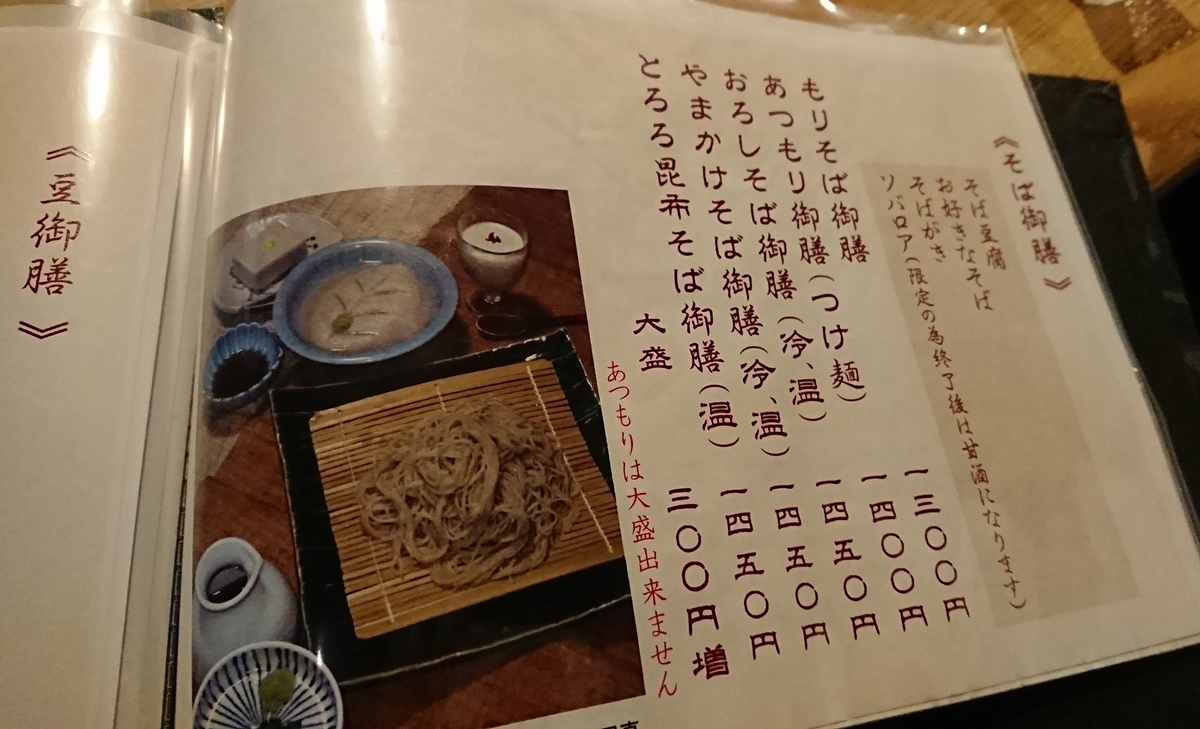 《そば御膳》
そば豆腐
お好きなそば
そばがき
ソバロア(限定の為終了後は甘酒になります)
もりそば御膳 一三〇〇円
あつもり御膳(つけ麺) 一四〇〇円
おろしそば御膳(冷、温) 一四五〇円
やまかけそば御膳(冷、温) 一四五〇円
とろろ昆布そば御膳(温) 一四五〇円
大盛 三〇〇円増
あつもりは大盛出来ません
《豆御膳》